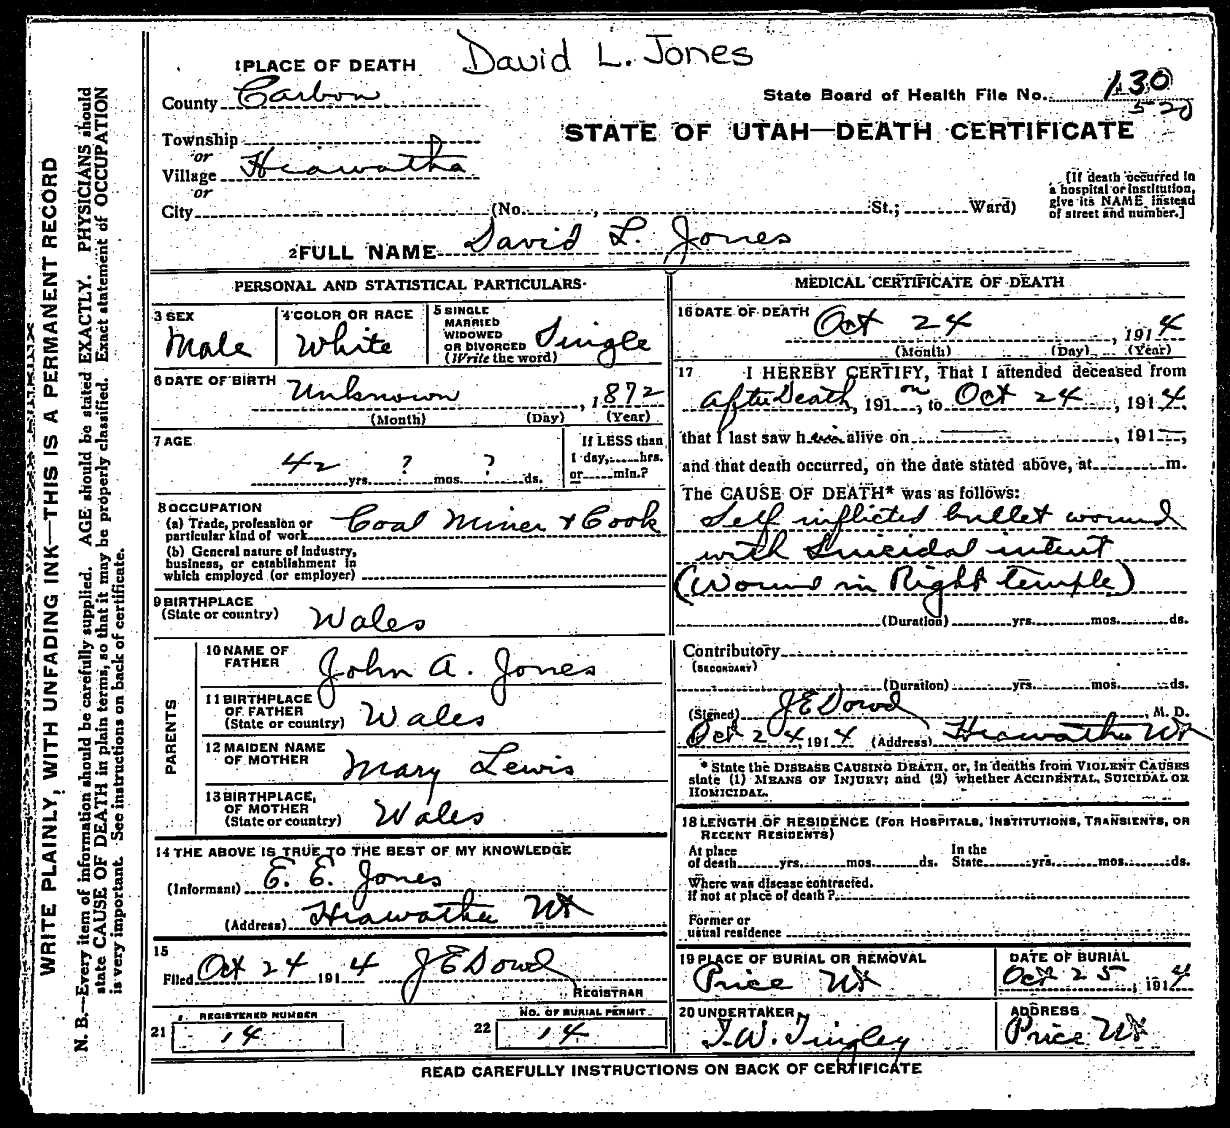 David L. Jones
1 PLACE OF DEATH
County Carbon
State Board of Health File No. 130
520
Township
or
Village Hiawatha
or
City (No. , St.; Ward)
STATE OF UTAH—DEATH CERTIFICATE
[If death occurred in
a hospital or institution,
give its NAME instead
of street and number.]
2 FULL NAME David L. Jones
PERSONAL AND STATISTICAL PARTICULARS.
3 SEX
Male
4 COLOR OR RACE
White
5 SINGLE
MARRIED
WIDOWED
OR DIVORCED
(Write the word)
Single
6 DATE OF BIRTH Unknown , 1872
(Month) (Day) (Year)
7 AGE
42 yrs. ? mos. ? ds.
If LESS than
1 day, hrs.
or min.?
8 OCCUPATION
(a) Trade, profession or
particular kind of work Coal Miner & Cook
(b) General nature of industry,
business, or establishment in
which employed (or employer)
9 BIRTHPLACE
(State or country) Wales
PARENTS
10 NAME OF
FATHER John A. Jones
11 BIRTHPLACE
OF FATHER
(State or country) Wales
12 MAIDEN NAME
OF MOTHER Mary Lewis
13 BIRTHPLACE,
OF MOTHER
(State or country) Wales
14 THE ABOVE IS TRUE TO THE BEST OF MY KNOWLEDGE
(Informant) E. E. Jones
(Address) Hiawatha Ut
15
Filed Oct 24 1914 J E Dowd
REGISTRAR
21 REGISTERED NUMBER
14
22 NO. OF BURIAL PERMIT
14
MEDICAL CERTIFICATE OF DEATH
16 DATE OF DEATH Oct 24 , 1914
(Month) (Day) (Year)
17 I HEREBY CERTIFY, That I attended deceased from
after Death, 191 on, to Oct 24 , 1914,
that I last saw him alive on , 191 ,
and that death occurred, on the date stated above, at m.
The CAUSE OF DEATH* was as follows:
Self inflicted bullet wound
with Suicidal intent
(Wound in Right temple)
(Duration) yrs. mos. ds.
Contributory
(SECONDARY)
(Duration) yrs. mos. ds.
(Signed) J E Dowd , M. D.
Oct 24, 1914 (Address) Hiawatha Ut
* State the DISEASE CAUSING DEATH, or, in deaths from VIOLENT CAUSES
state (1) MEANS OF INJURY; and (2) whether ACCIDENTAL, SUICIDAL OR
HOMICIDAL.
18 LENGTH OF RESIDENCE (FOR HOSPITALS, INSTITUTIONS, TRANSIENTS, OR
RECENT RESIDENTS)
At place
of death yrs. mos. ds.
In the
State yrs. mos. ds.
Where was disease contracted.
if not at place of death?
Former or
usual residence
19 PLACE OF BURIAL OR REMOVAL
Price Ut
DATE OF BURIAL
Oct 25, 1914
20 UNDERTAKER
J. W. Tingley
ADDRESS
Price Ut
READ CAREFULLY INSTRUCTIONS ON BACK OF CERTIFICATE
WRITE PLAINLY, WITH UNFADING INK—THIS IS A PERMANENT RECORD
N. B.—Every item of information should be carefully supplied. AGE should be stated EXACTLY. PHYSICIANS should
state CAUSE OF DEATH in plain terms, so that it may be properly classified. Exact statement of OCCUPATION
is very important. See instructions on back of certificate.